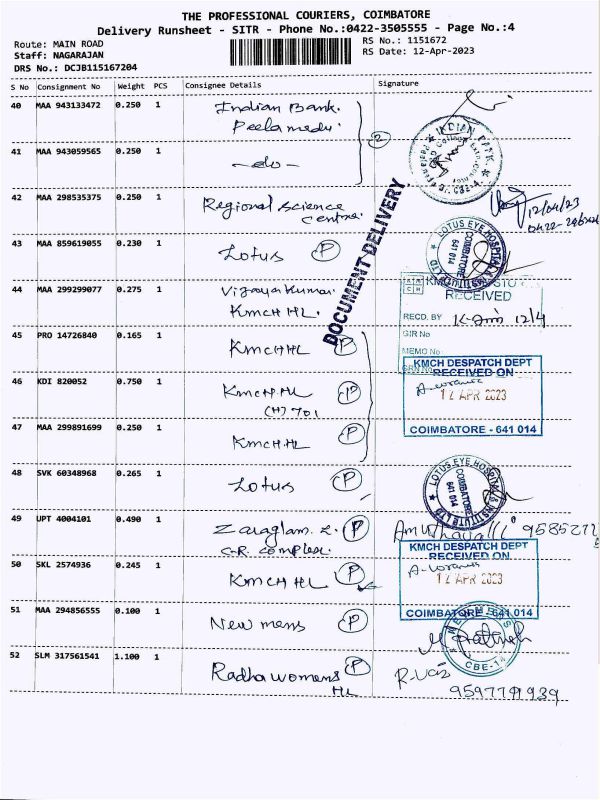 THE PROFESSIONAL COURIERS, COIMBATORE
Delivery Runsheet - SITR - Phone No.:0422-3505555 - Page No.:4
Route: MAIN ROAD
RS No.: 1151672
Staff: NAGARAJAN
RS Date: 12-Apr-2023
DRS No.: DCJB115167204
S No Consignment No Weight PCS Consignee Details Signature
40 MAA 943133472 0.250 1 Indian Bank.
Peelamedu.
2
INDIAN BANK
41 MAA 943059565 0.250 1 -do-
DOCUMENT DELIVERY
42 MAA 298535375 0.250 1 Regional Science
Centre.
12/04/23
43 MAA 859619055 0.230 1 Lotus P
LOTUS EYE HOSPITAL & INSTITUTE LTD
COIMBATORE
641 014
44 MAA 299299077 0.275 1 Vijayakumar
KMCH HL.
RECEIVED
RECD. BY 12/4
GIR No
MEMO No
45 PRO 14726840 0.165 1 KMCH HL P
KMCH DESPATCH DEPT
RECEIVED ON
12 APR 2023
COIMBATORE - 641 014
46 KDI 820052 0.750 1 KMCH.HL P
(H) 701
47 MAA 299891699 0.250 1 KMCH.HL P
48 SVK 60348968 0.265 1 Lotus P
LOTUS EYE HOSPITAL & INSTITUTE LTD
COIMBATORE
641 014
49 UPT 4004101 0.490 1 Zaraglam. P
C.R. complex.
50 SKL 2574936 0.245 1 KMCH HL P
KMCH DESPATCH DEPT
RECEIVED ON
12 APR 2023
COIMBATORE - 641 014
51 MAA 294856555 0.100 1 New mens P
CBE-14
52 SLM 317561541 1.100 1 Radha womens P
HL